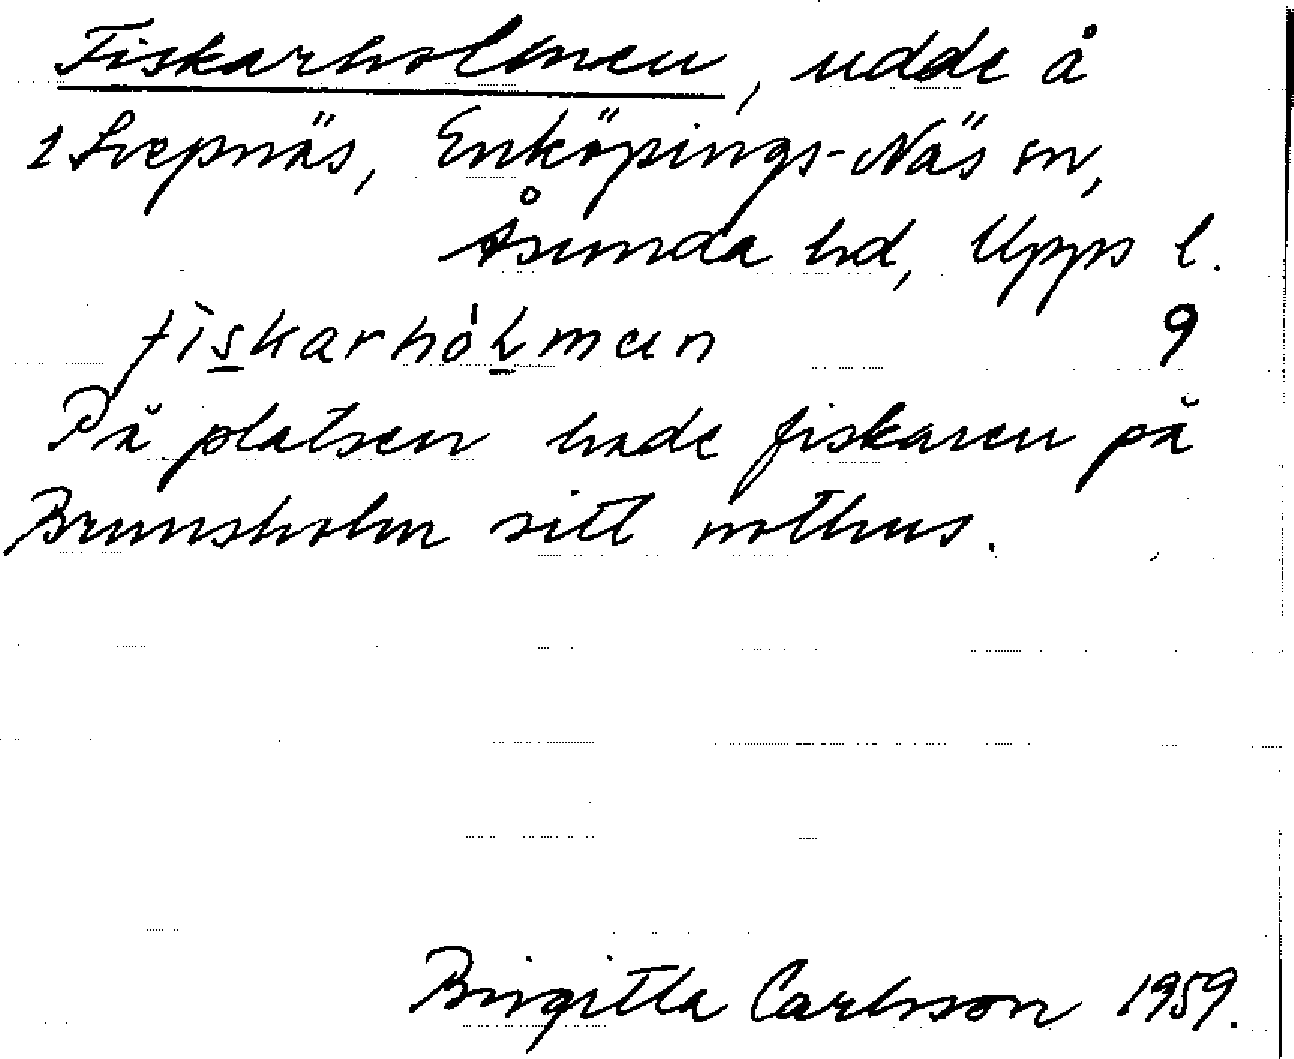 Fiskarholmen, udde å
1 Svepnäs, Enköpings-Näs sn,
Åsunda hd, Upps l.
fìskarhólmɐn 9
På platsen hade fiskaren på
Brunsholm sitt nothus.
Birgitta Carlsson 1959.